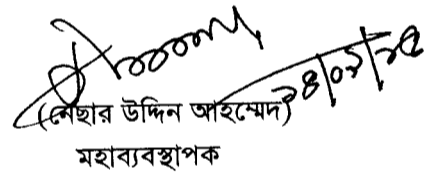 ২৪/০২/২৫
(নেছার উদ্দিন আহম্মেদ)
মহাব্যবস্থাপক